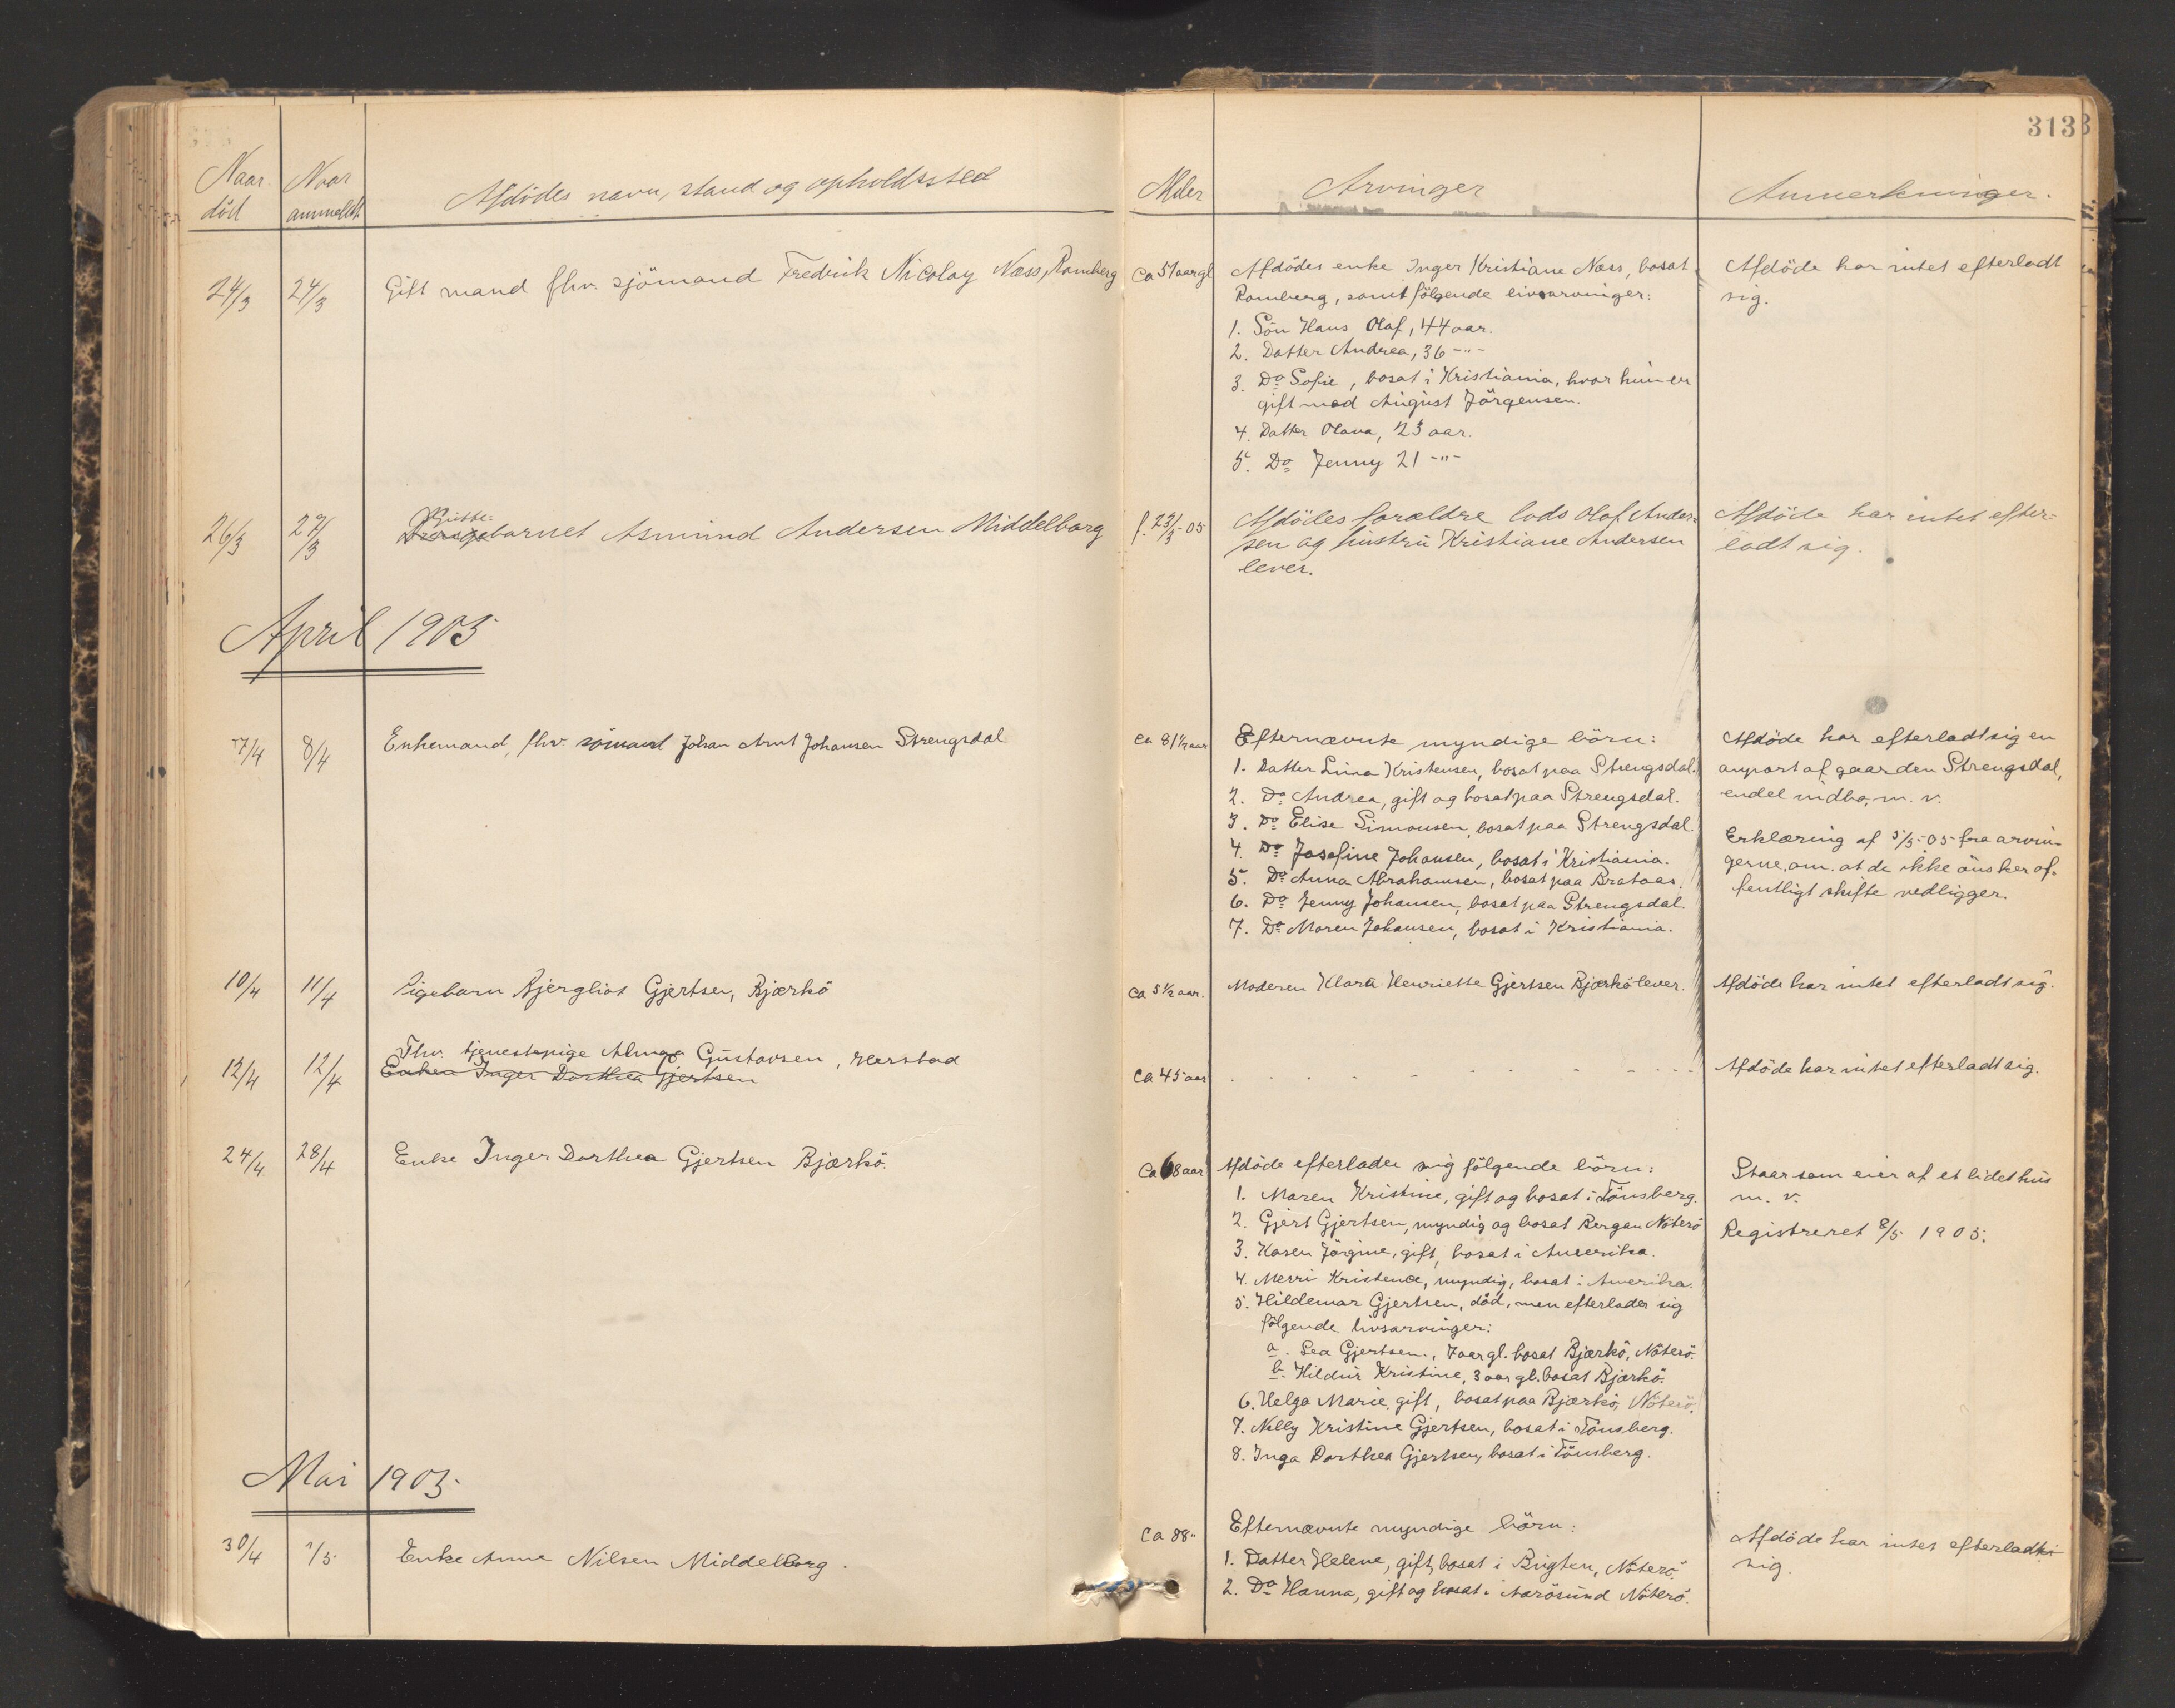 313
Naar død
Naar anmeldt
Afdödes navn, stand og opholdssted
Alder
Arvinger
Anmerkninger.
24/3 24/3 Gift mand fhv. sjömand Fredrik Nicolay Næss, Ramberg
Afdödes enke Inger Kristiane Næss, bosat
Ramberg, samt följgende livsarvinger:
1. Sön Hans Olaf, 44 aar.
2. Datter Andrea, 36 -"-
3. Do Sofie, bosat i Kristiania, hvor hun er
gift med August Jörgensen.
4. Datter Olava, 23 aar.
5. Do Jenny 21 -"-
Afdöde har intet efterladt
sig.
26/3 27/3 Gutte-
barnet Asmund Andersen Middelborg
f. 23/3-05
Afdödes forældre lods Olaf Ander-
sen og hustru Kristiane Andersen
lever.
Afdöde har intet efter-
ladt sig.
April 1905
7/4 8/4 Enkemand, fhv. sömand Johan Arnt Johansen Strengsdal
ca 81 1/2 aar
Efternævnte myndige börn:
1. Datter Lina Kristensen, bosat paa Strengsdal.
2. Do Andrea, gift og bosat paa Strengsdal.
3. Do Elise Simonsen, bosat paa Strengsdal.
4. Do Josefine Johansen, bosat i Kristiania.
5. Do Anna Abrahamsen, bosat paa Brataas.
6. Do Jenny Johansen, bosat paa Strengsdal.
7. Do Maren Johansen, bosat i Kristiania.
Afdöde har efterladt sig en
anpart af gaarden Strengsdal,
endel indbo, m. v.
Erklæring af 5/5-05 fra arvin-
gerne, om. at de ikke önsker of-
fentligt skifte vedligger.
10/4 11/4 Pigebarn Bjergliot Gjertsen, Bjærkö
ca 5 1/2 aar.
Moderen Klara Henriette Gjertsen Bjærkö lever.
Afdöde har intet efterladt sig.
12/4 12/4 Fhv. tjenestepige Alma Gustavsen, Herstad
Enken Inger Dorthea Gjertsen
ca 45 aar
Afdöde har intet efterladt sig.
24/4 28/4 Enke Inger Dorthea Gjertsen Bjærkö.
ca 68 aar
Afdöde efterlader sig fölgende börn:
1. Maren Kristine, gift og bosat i Tönsberg.
2. Gjert Gjertsen, myndig og bosat Bergan Nöterö
3. Karen Jörgine, gift, bosat i Amerika.
4. Merri Kristence, myndig, bosat i Amerika.
5. Hildemar Gjertsen, död, men efterlader sig
fölgende livsarvinger:
a. Lea Gjertsen., 7 aar gl. bosat Bjærkö, Nöterö.
b. Hildur Kristine, 3 aar gl. bosat Bjærkö.
6. Helga Marie, gift, bosat paa Bjærkö, Nöterö.
7. Nelly Kristine Gjertsen, bosat i Tönsberg.
8. Inga Dorthea Gjertsen, bosat i Tönsberg.
Staar som eier af et lidet hus
m. v.
Registreret 8/5 1905.
Mai 1905.
30/4 1/5 Enke Anne Nilsen Middelborg.
ca 88 "
Efternævnte myndige börn:
1. Datter Helene, gift, bosat i Brigten, Nöterö.
2. Do Hanna, gift og bosat i Aarösund Nöterö.
Afdöde har intet efterladt
sig.